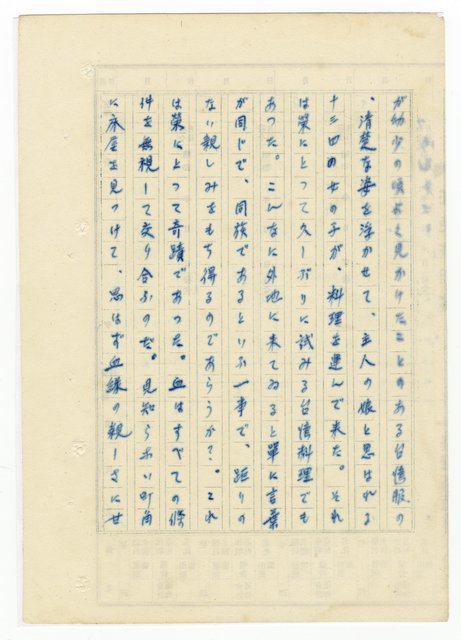 が幼少の頃よく見かけたことのある台湾服の
、清楚な姿を浮かせて、主人の娘と思はれる
十三四の女の子が、料理を運んで来た。それ
は栄にとって久しぶりに試みる台湾料理でも
あつた。こんなに外地に来てゐると單に言葉
が同じで、同族であるといふ一事で、距りの
ない親しみをもち得るのであらうか？。これ
は栄にとって奇蹟であつた。血はすべての條
件を無視して交り合ふのだ。見知らない町角
に床屋を見つけて、思はず血縁の親しさにせ